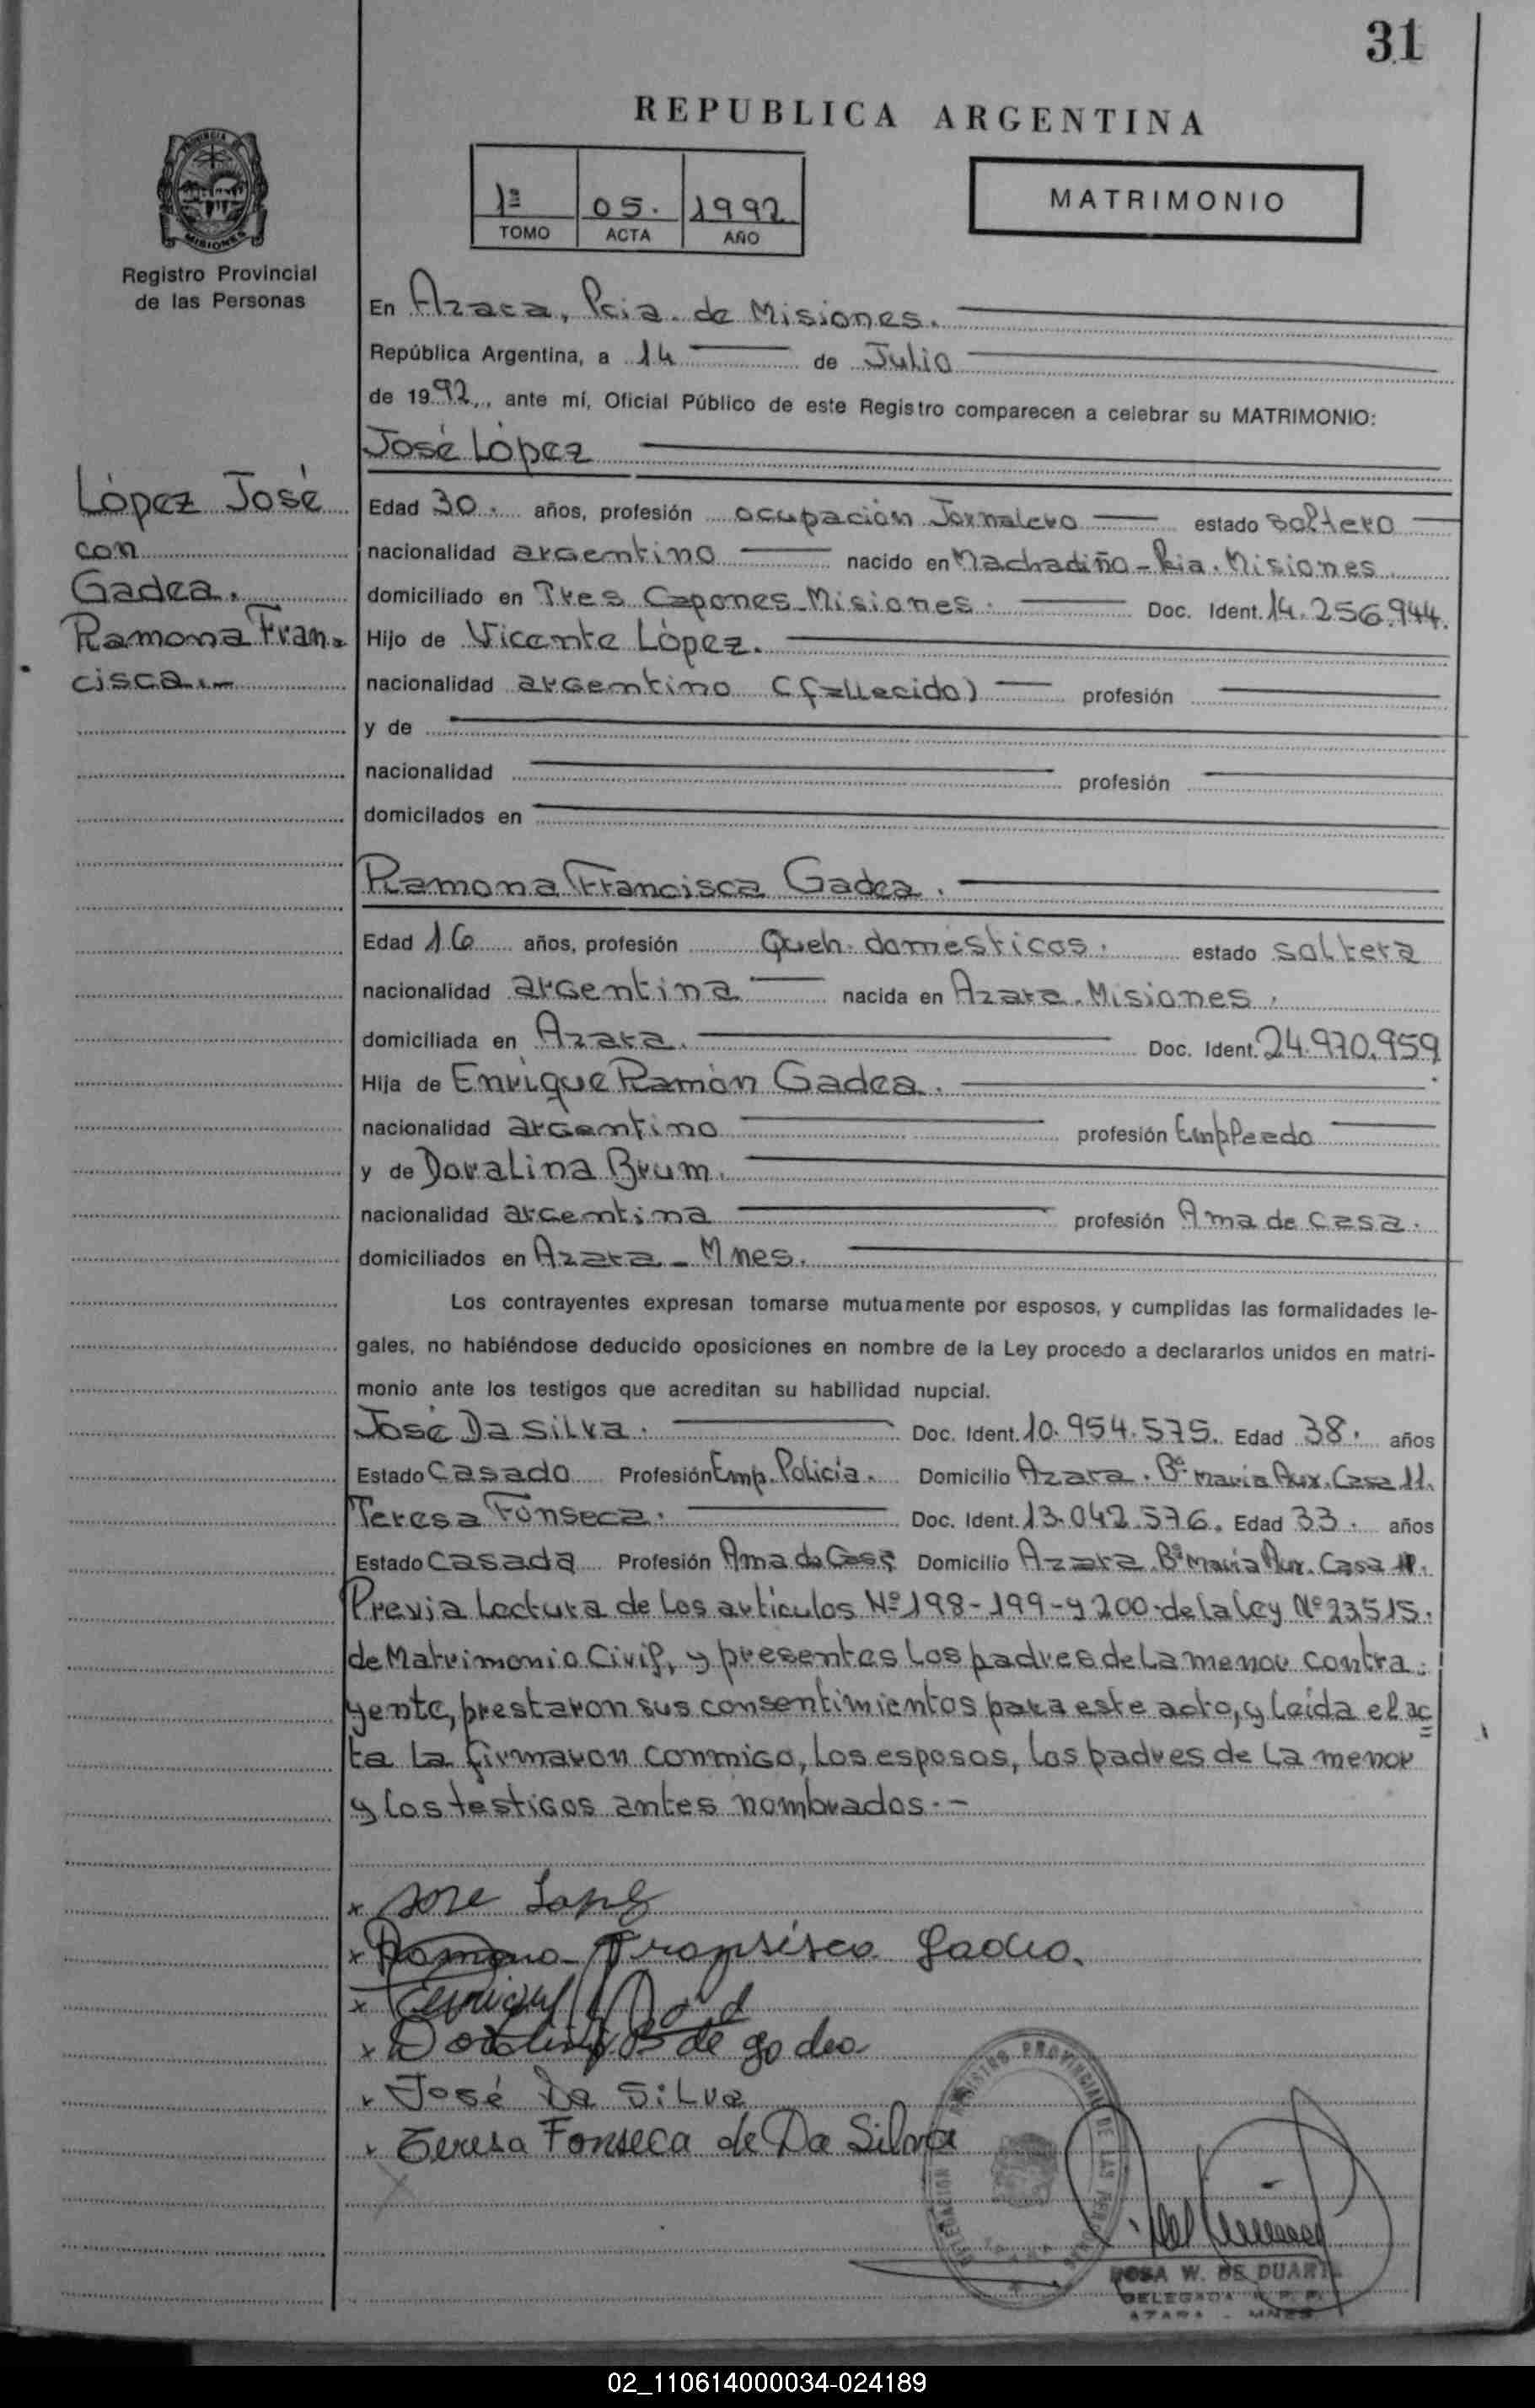 31
REPUBLICA ARGENTINA
PROVINCIA DE
MISIONES
Registro Provincial
de las Personas
1º 05. 1992
TOMO ACTA AÑO
MATRIMONIO
En Azara, Pcia. de Misiones.
República Argentina, a 14 de Julio
de 1992,, ante mí, Oficial Público de este Registro comparecen a celebrar su MATRIMONIO:
José López
López José
con
Gadea.
Ramona Fran-
cisca.-
Edad 30. años, profesión ocupación Jornalero estado soltero
nacionalidad argentino nacido en Machadiño - Pcia. Misiones
domiciliado en Tres Capones - Misiones. Doc. Ident. 14.256.944.
Hijo de Vicente López.
nacionalidad argentino (fallecido) profesión
y de
nacionalidad profesión
domicilados en
Ramona Francisca Gadea.
Edad 16 años, profesión Queh. domésticos. estado soltera
nacionalidad argentina nacida en Azara - Misiones.
domiciliada en Azara. Doc. Ident. 24.970.959
Hija de Enrique Ramón Gadea.
nacionalidad argentino profesión Empleado
y de Doralina Brum.
nacionalidad argentina profesión Ama de casa.
domiciliados en Azara - Mnes.
Los contrayentes expresan tomarse mutuamente por esposos, y cumplidas las formalidades le-
gales, no habiéndose deducido oposiciones en nombre de la Ley procedo a declararlos unidos en matri-
monio ante los testigos que acreditan su habilidad nupcial.
José Da Silva. Doc. Ident. 10.954.575. Edad 38. años
Estado Casado Profesión Emp. Policía. Domicilio Azara. Bº María Aux. Casa 11.
Teresa Fonseca. Doc. Ident. 13.042.576. Edad 33. años
Estado Casada Profesión Ama de Casa Domicilio Azara. Bº María Aux. Casa 11.
Previa lectura de los artículos Nº 198-199-y 200 de la Ley Nº 23515.
de Matrimonio Civil, y presentes los padres de la menor contra-
yente, prestaron sus consentimientos para este acto, y leída el ac
ta la firmaron conmigo, los esposos, los padres de la menor
y los testigos antes nombrados.-
x Jose Lopez
x Ramona Fransisca Gadea.
x Enrique
x Doralina B de gadea
x José Da Silva
x Teresa Fonseca de Da Silva
DELEGACION REGISTRO PROVINCIAL DE LAS PERSONAS
AZARA
ROSA W. DE DUARTE
DELEGADA R. P. P.
AZARA - MNES
02_110614000034-024189